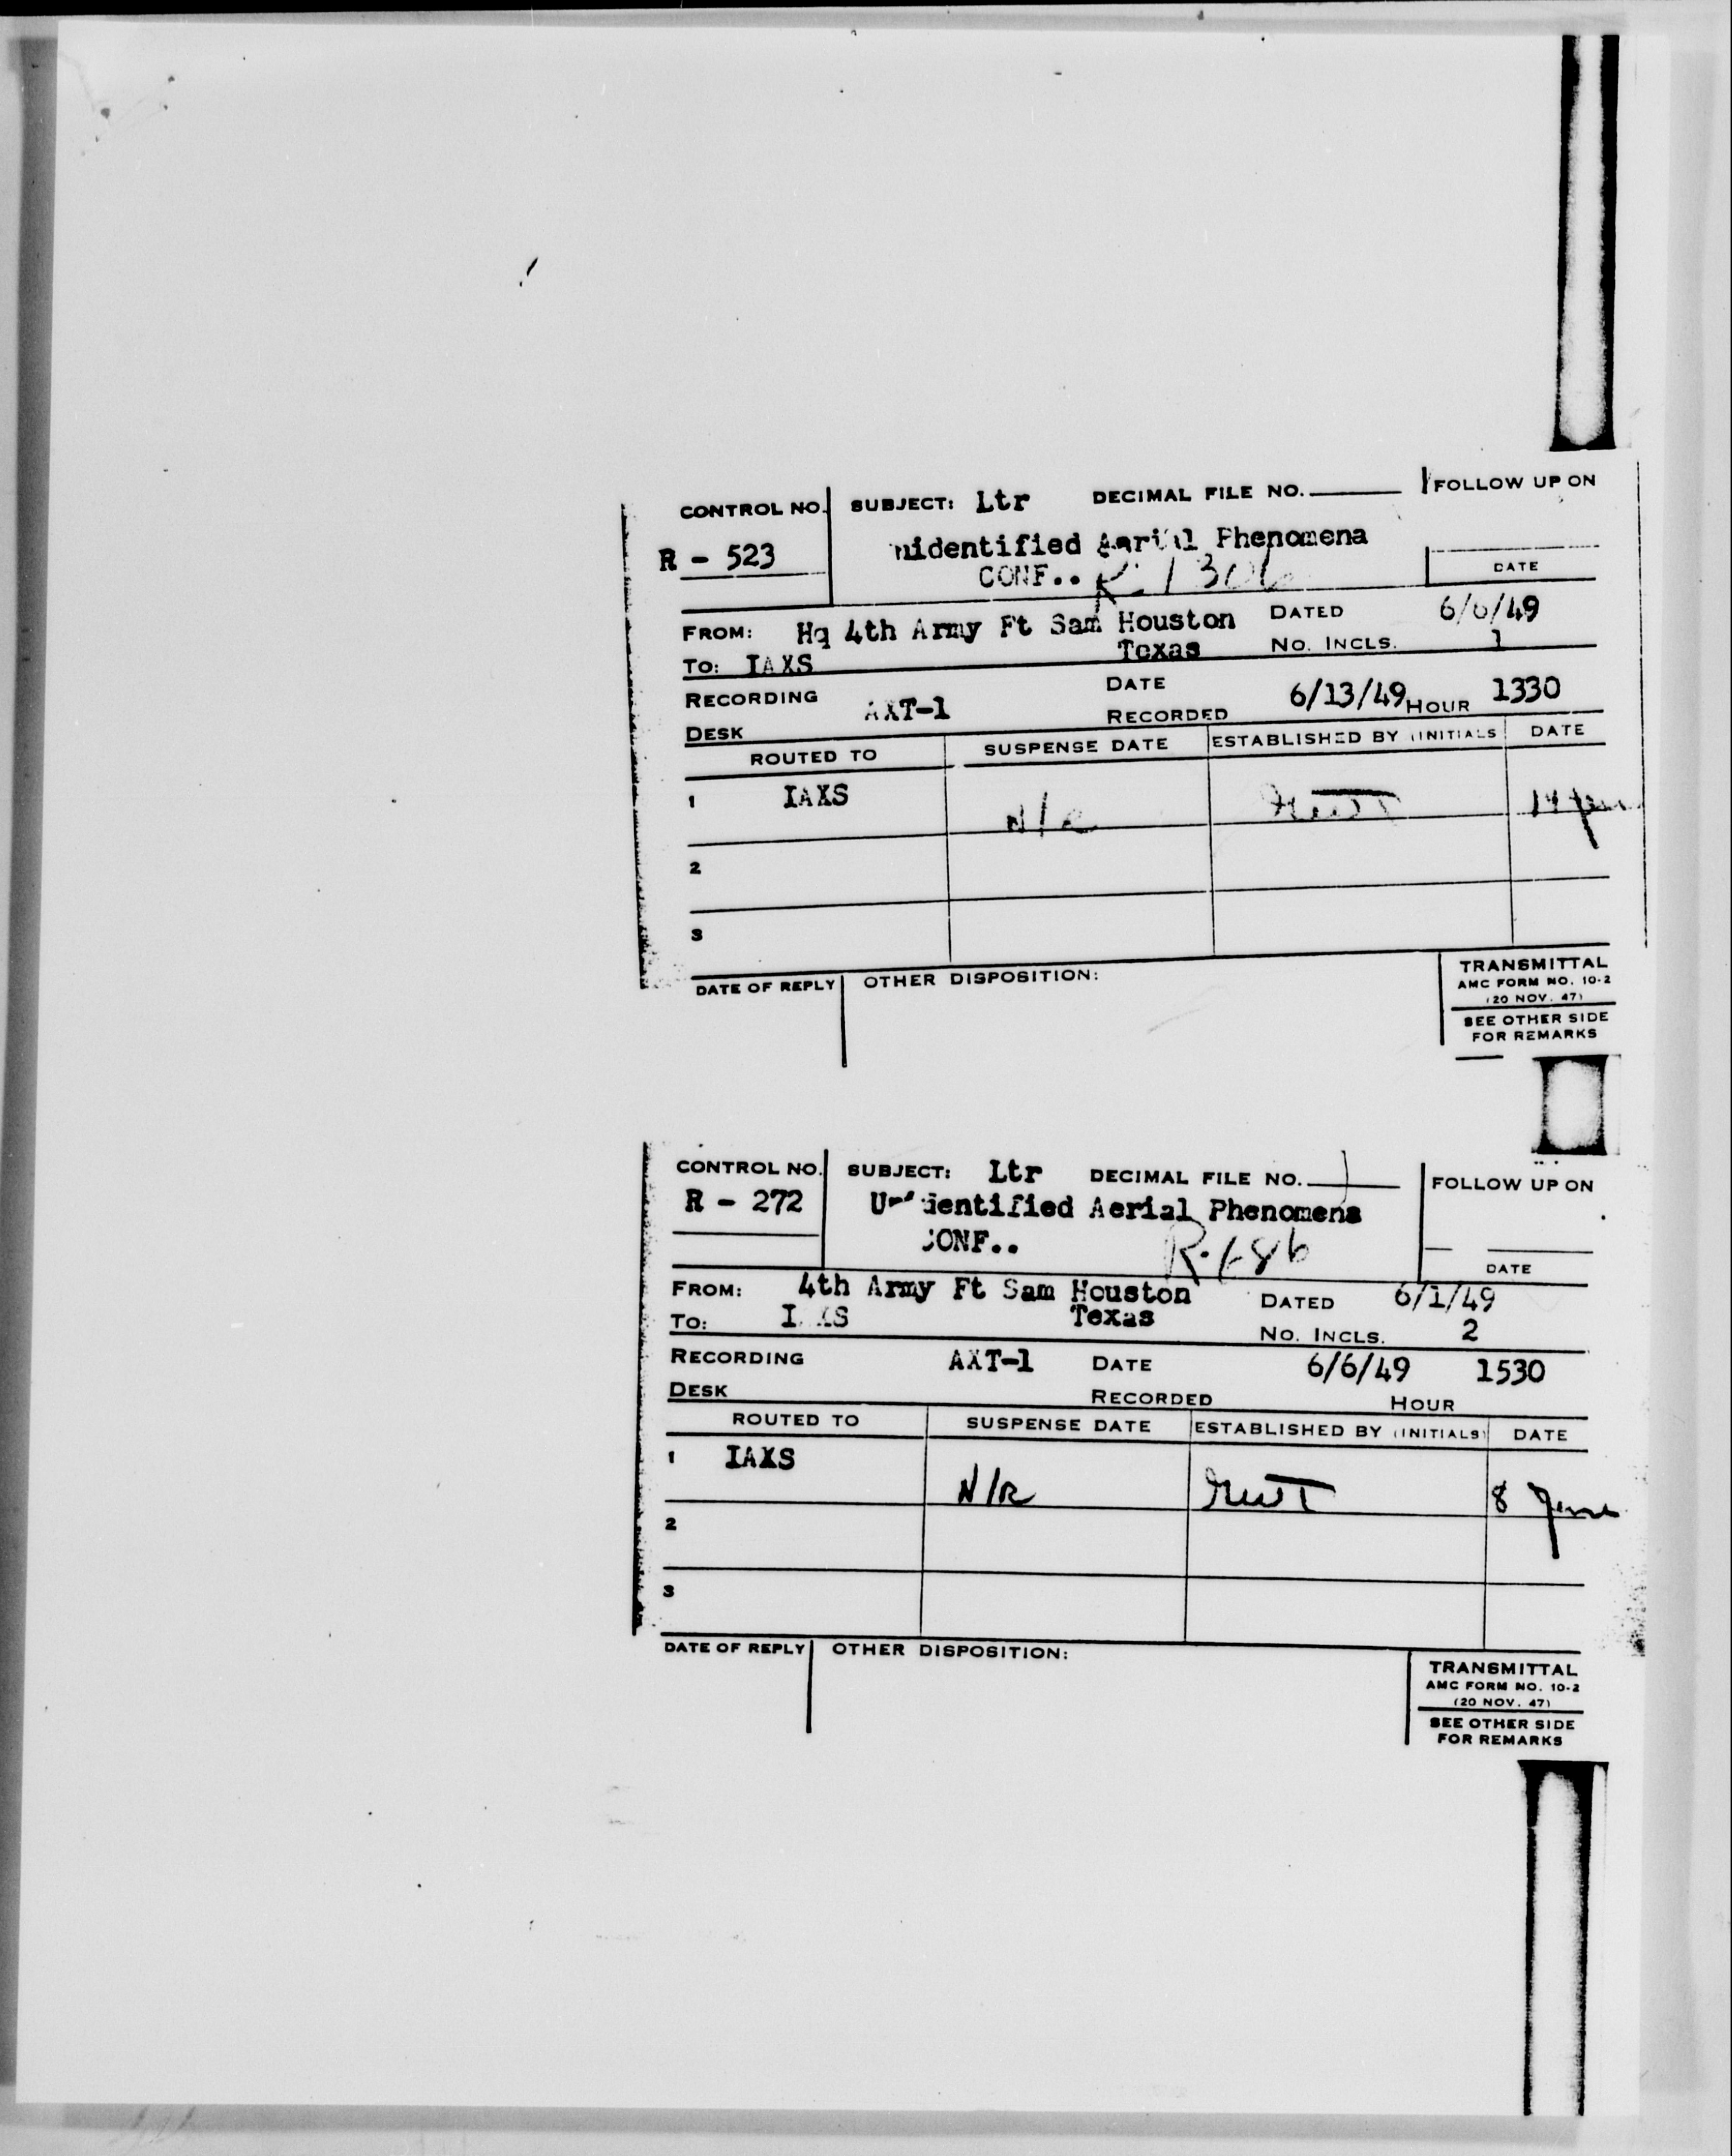 CONTROL NO. SUBJECT: Ltr DECIMAL FILE NO. FOLLOW UP ON
R - 523 nidentified Aerial Phenomena
CONF.. R-1306 DATE
FROM: Hq 4th Army Ft Sam Houston DATED 6/6/49
TO: IAXS Texas NO. INCLS. 1
RECORDING AXT-1 DATE 6/13/49 HOUR 1330
DESK RECORDED
ROUTED TO SUSPENSE DATE ESTABLISHED BY (INITIALS DATE
1 IAXS N/R 14 June
2
3
DATE OF REPLY OTHER DISPOSITION: TRANSMITTAL
AMC FORM NO. 10-2
(20 NOV. 47)
SEE OTHER SIDE
FOR REMARKS
CONTROL NO. SUBJECT: Ltr DECIMAL FILE NO. FOLLOW UP ON
R - 272 Unidentified Aerial Phenomena
CONF.. DATE
FROM: 4th Army Ft Sam Houston DATED 6/1/49
TO: Texas NO. INCLS. 2
RECORDING AXT-1 DATE 6/6/49 1530
DESK RECORDED HOUR
ROUTED TO SUSPENSE DATE ESTABLISHED BY (INITIALS) DATE
1 IAXS N/R 8 June
2
3
DATE OF REPLY OTHER DISPOSITION: TRANSMITTAL
AMC FORM NO. 10-2
(20 NOV. 47)
SEE OTHER SIDE
FOR REMARKS